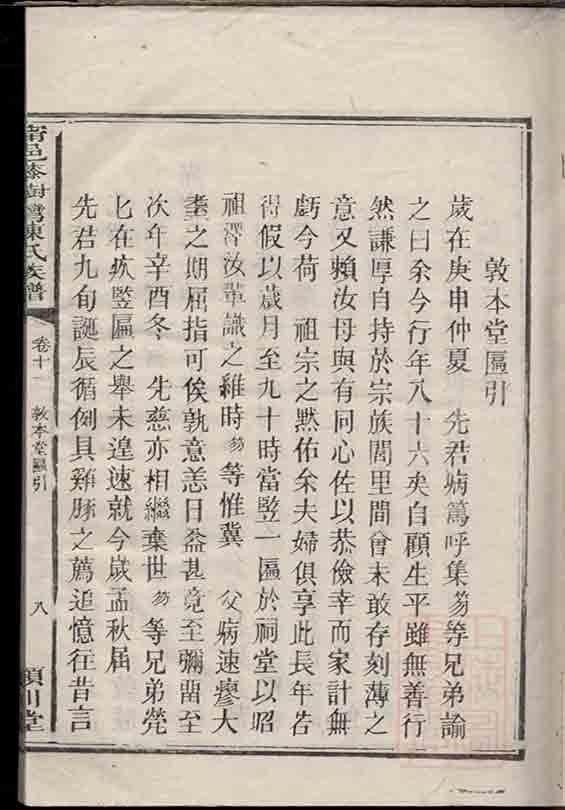 敦本堂匾引
歲在庚申仲夏 先君病篤呼集芴等兄弟諭
之曰余今行年八十六矣自顧生平雖無善行
然謙厚自持於宗族閭里間曾未敢存刻薄之
意又賴汝母與有同心佐以恭儉幸而家計無
虧今荷 祖宗之黙佑余夫婦俱享此長年吿
得假以歲月至九十時當竪一匾於祠堂以昭
祖澤汝輩識之維時芴等惟冀 父病速瘳大
耋之期屈指可俟孰意恙日益甚竟至彌畱至
次年辛酉冬 先慈亦相繼棄世芴等兄弟煢
匕在疚竪匾之舉未遑速就今歲孟秋届
先君九旬誕辰循例具雞豚之薦追憶往昔言
莆邑漆樹灣陳氏族譜
卷十一
敦本堂匾引
八
潁川堂